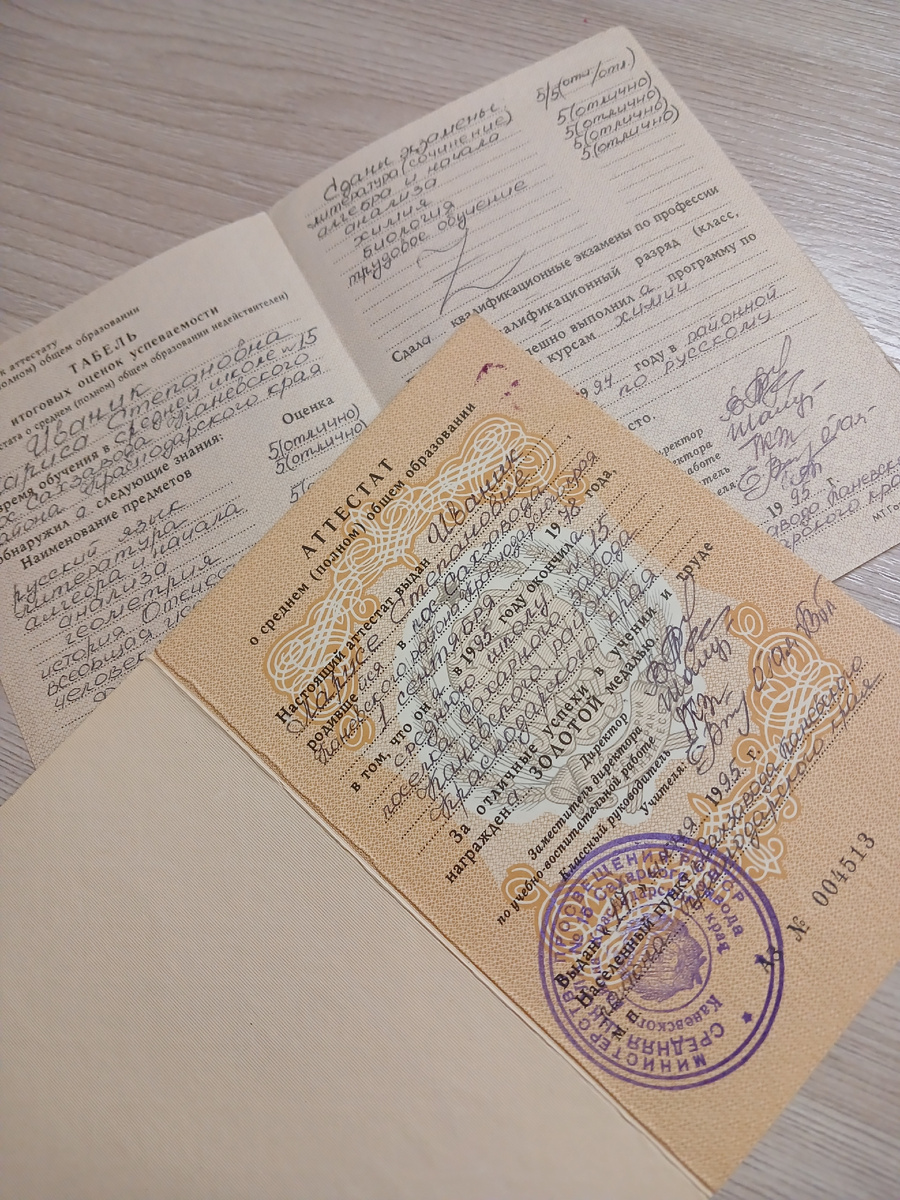 к аттестату
(полном) общем образовании
ТАБЕЛЬ
итоговых оценок успеваемости
о среднем (полном) общем образовании недействителен)
Иваник
Лариса Степановна
время обучения в средней школе № 15
пос Сахзавода Каневского
района Краснодарского края
обнаружила следующие знания:
Наименование предметов
Оценка
русский язык 5(отлично)
литература 5(отлично)
алгебра и начала
анализа 5(
геометрия
история Отечес
всеобщая
человек
Сданы экзамены
литература (сочинение) 5/5(отл./отл.)
алгебра и начала
анализа 5(отлично)
химия 5(отлично)
биология 5(отлично)
трудовое обучение 5(отлично)
Сдала квалификационные экзамены по профессии
алификационный разряд (класс,
пешно выполнила программу по
курсам химии
1994 году в районной
по русскому
сто.
ректор
ректора
работе
итель
теля
1995 г.
завода Каневск
арского кра
МТ Го
АТТЕСТАТ
о среднем (полном) общем образовании
Настоящий аттестат выдан Иваник
Ларисе Степановне
родившейся в пос Сахзавода
Каневского района Краснодарского края
1 сентября 1978 года,
в том, что он а в 1995 году окончила
среднюю школу № 15
поселка Сахарного завода
Каневского района
Краснодарского края
За отличные успехи в учении и труде
награждена ЗОЛОТОЙ медалью.
Директор
Заместитель директора
по учебно-воспитательной работе
Классный руководитель
Учителя:
Выдан 1995 г.
Населенный пункт Сахзавода Каневского
района Краснодарского края
М П
А № 004513
МИНИСТЕРСТВО ПРОСВЕЩЕНИЯ РСФСР
СРЕДНЯЯ
Сахарного завода
Каневского
Краснодарского края